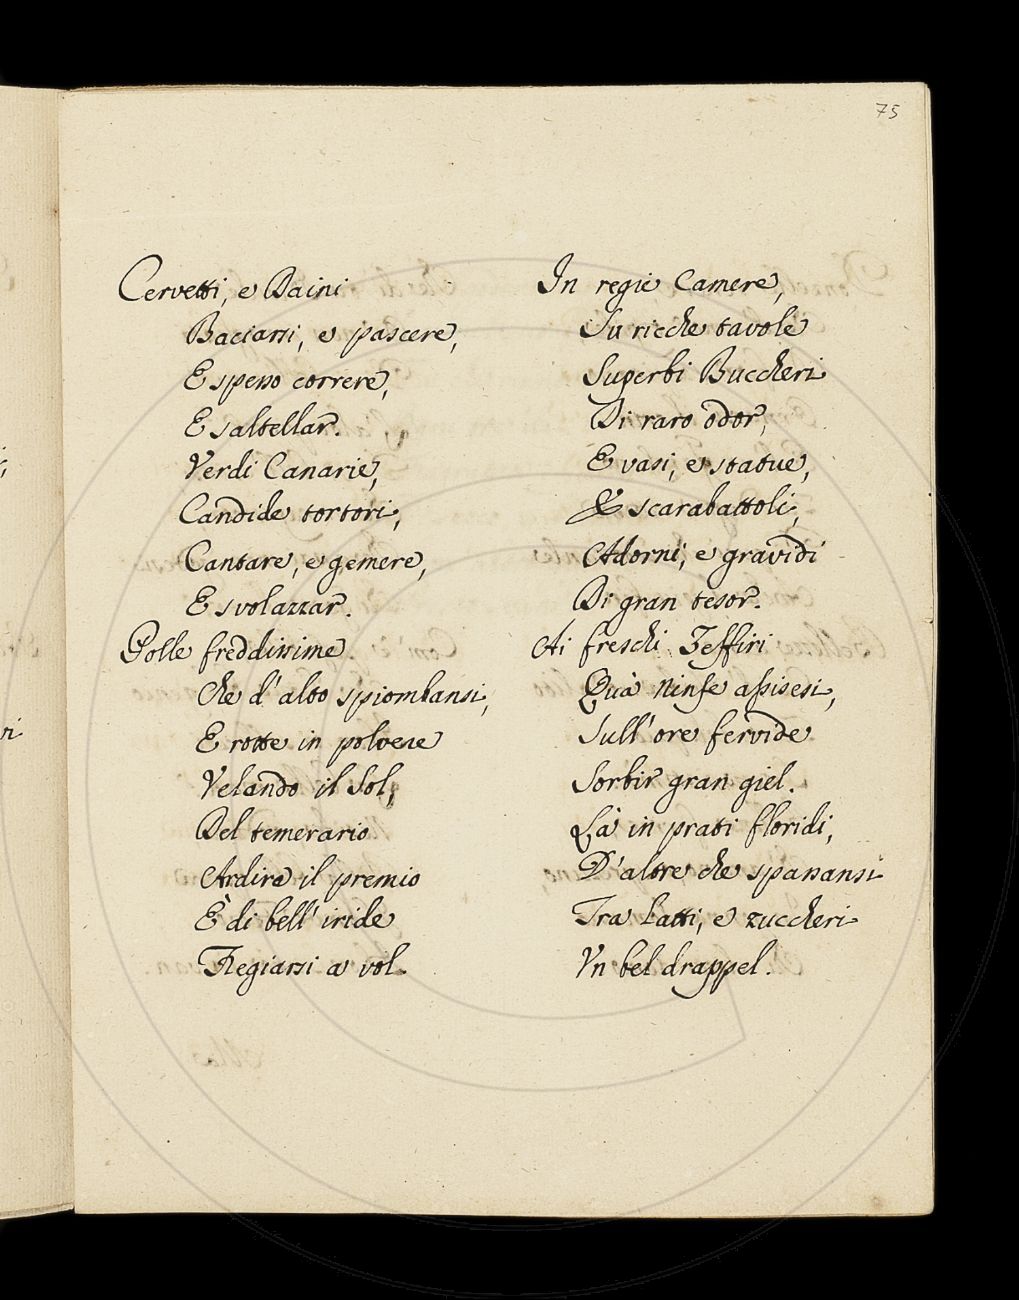 75
Cervetti, e Daini
Baciarsi, e pascere,
E spesso correre,
E saltellar.
Verdi Canarie,
Candide tortori,
Cantare, e gemere,
E svolazzar.
Polle freddissime
Che d'alto spiombansi,
E rotte in polvere
Velando il Sol,
Del temerario
Ardire il premio
È di bell'iride
Fregiarsi a vol.
In regie Camere,
Su ricche tavole
Superbi Buccheri
Di raro odor,
E vasi, e statue,
E scarabattoli,
Adorni, e gravidi
Di gran tesor.
Ai freschi Zeffiri
Quà Ninfe assisesi,
Sull'ore fervide
Sorbir gran giel.
Là in prati floridi,
D'altre che spanansi
Tra latti, e zuccheri
Un bel drappel.